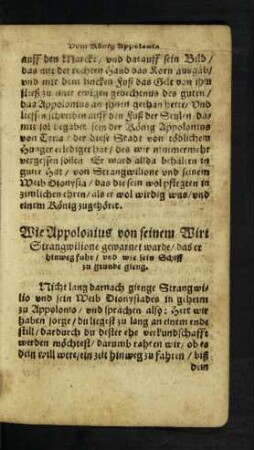 Vom König Appolonio
auff den Marckt/ vnd darauff sein Bild/
das mit der rechten Hand das Korn außgab/
vnd mit dem lincken Fuß das Gelt von ihm
stieß zu einer ewigen gedechtnus des guten/
das Appolonius an jhnen gethan hette: Vnd
liessen schreiben auff den Fuß der Seulen da-
mit sol begaben sein der König Appolonius
von Tiria / der diese Stadt von tödlichen
Hunger erlediget hat / des wir nimmermehr
vergessen sollen Er ward allda behalten in
guter Hut / von Strangwilione vnd seinem
Weib Dionysia / das die sein wol pflegten in
zimlichen ehren / als er wol wirdig was / vnd
einem König zugehöret.
Wie Appolonius von seinem Wirt
Strangwilione gewarnet warde / das er
hinweg fuhr / vnd wie sein Schiff
zu grunde gieng.
Nicht lang darnach gienge Strangwi-
lio vnd sein Weib Dionysiades in geheim
zu Appolonio / vnd sprachen also: Herr wir
haben sorge / du liegest zu lang an einem ende
still / dardurch du dester ehe verkundschafft
werden möchtest / darumb rahten wir / ob es
dein will were / ein zeit hinweg zu fahren / biß
dein